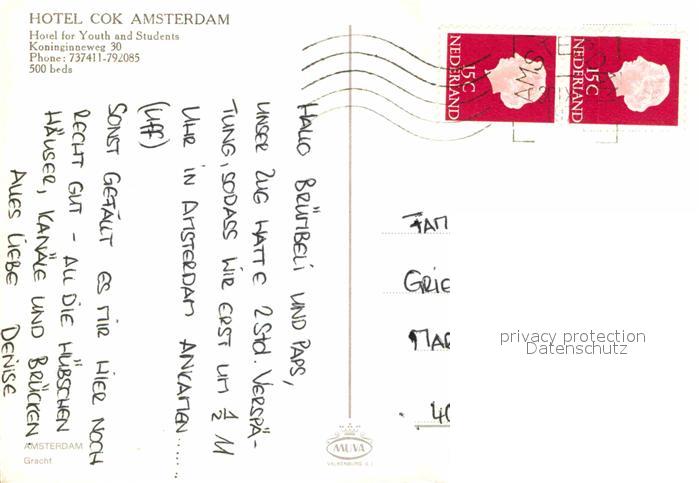 HOTEL COK AMSTERDAM
Hotel for Youth and Students
Koninginneweg 30
Phone: 737411-792085
500 beds
HALLO BRÜMBELI UND PAPS,
UNSER ZUG HATTE 2 Std. VERSPÄ-
TUNG, SODASS WIR ERST UM ½ 11
UHR IN AMSTERDAM ANKAMEN......
(UFF)
SONST GEFÄLLT ES MIR HIER NOCH
RECHT GUT - ALL DIE HÜBSCHEN
HÄUSER, KANÄLE UND BRÜCKEN.
ALLES LIEBE DENISE
AMSTERDAM
Gracht
MUVA
VALKENBURG
15 C
NEDERLAND
15 C
NEDERLAND
AMST
FAM
GRIE
MAR
40
privacy protection
Datenschutz